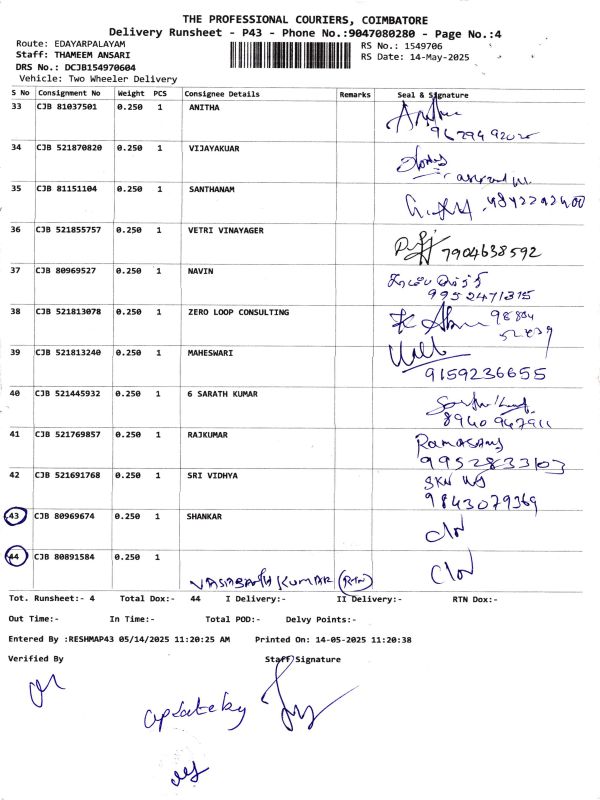 THE PROFESSIONAL COURIERS, COIMBATORE
Delivery Runsheet - P43 - Phone No.:9047080280 - Page No.:4
Route: EDAYARPALAYAM RS No.: 1549706
Staff: THAMEEM ANSARI RS Date: 14-May-2025
DRS No.: DCJB154970604
Vehicle: Two Wheeler Delivery
S No Consignment No Weight PCS Consignee Details Remarks Seal & Signature
33 CJB 81037501 0.250 1 ANITHA
34 CJB 521870820 0.250 1 VIJAYAKUAR
35 CJB 81151104 0.250 1 SANTHANAM
36 CJB 521855757 0.250 1 VETRI VINAYAGER
7904638592
37 CJB 80969527 0.250 1 NAVIN
9952471315
38 CJB 521813078 0.250 1 ZERO LOOP CONSULTING
39 CJB 521813240 0.250 1 MAHESWARI
9159236655
40 CJB 521445932 0.250 1 6 SARATH KUMAR
8940947911
41 CJB 521769857 0.250 1 RAJKUMAR
9952833103
42 CJB 521691768 0.250 1 SRI VIDHYA
9843079369
43 CJB 80969674 0.250 1 SHANKAR
44 CJB 80891584 0.250 1
KUMAR (RTN)
Tot. Runsheet:- 4 Total Dox:- 44 I Delivery:- II Delivery:- RTN Dox:-
Out Time:- In Time:- Total POD:- Delvy Points:-
Entered By :RESHMAP43 05/14/2025 11:20:25 AM Printed On: 14-05-2025 11:20:38
Verified By Staff Signature